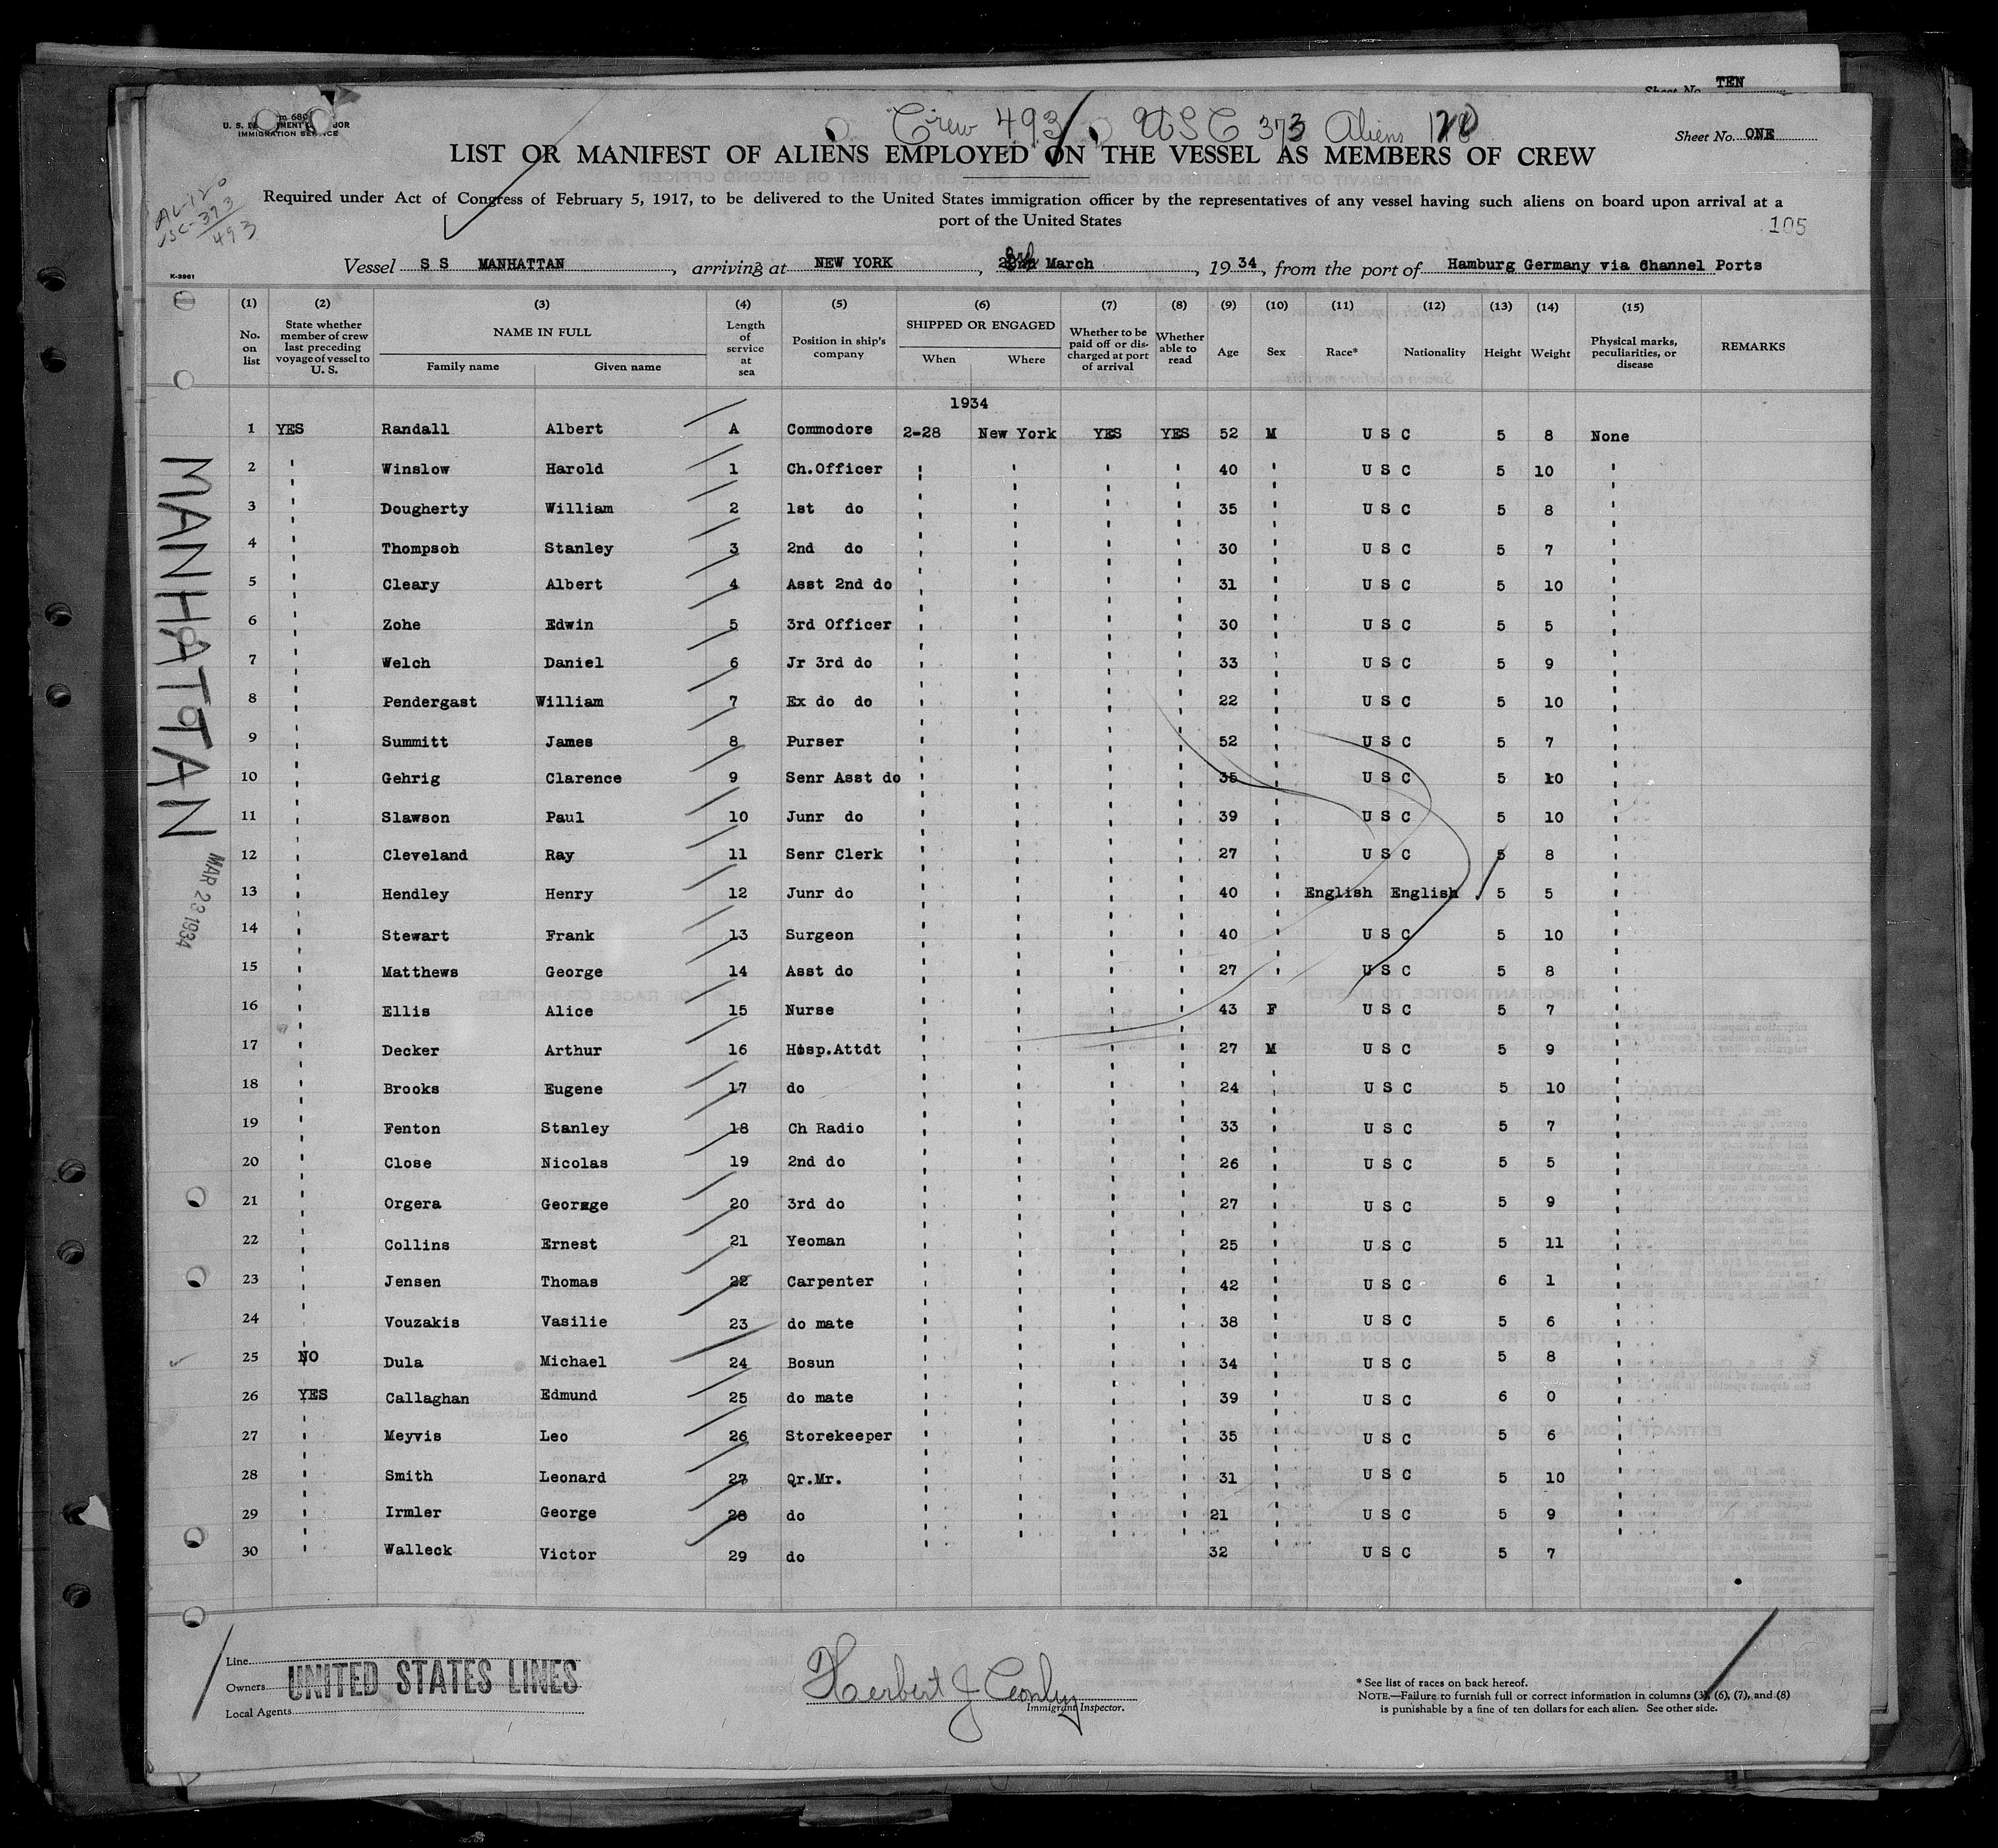 Sheet No. TEN
Crew 493 USC 373 Aliens 120
U. S. IMMIGRATION SERVICE
Sheet No. ONE
LIST OR MANIFEST OF ALIENS EMPLOYED ON THE VESSEL AS MEMBERS OF CREW
AL-120
USC-373
493
Required under Act of Congress of February 5, 1917, to be delivered to the United States immigration officer by the representatives of any vessel having such aliens on board upon arrival at a
port of the United States
105
K-3961
Vessel S S MANHATTAN, arriving at NEW YORK, March, 1934, from the port of Hamburg Germany via Channel Ports
(1) (2) (3) (4) (5) (6) (7) (8) (9) (10) (11) (12) (13) (14) (15)
No. on list State whether member of crew last preceding voyage of vessel to U. S. NAME IN FULL Family name Given name Length of service at sea Position in ship's company SHIPPED OR ENGAGED When Where Whether to be paid off or discharged at port of arrival Whether able to read Age Sex Race* Nationality Height Weight Physical marks, peculiarities, or disease REMARKS
1934
1 YES Randall Albert A Commodore 2-28 New York YES YES 52 M U S C 5 8 None
2 " Winslow Harold 1 Ch.Officer " " " " 40 " U S C 5 10 "
3 " Dougherty William 2 1st do " " " " 35 " U S C 5 8 "
4 " Thompsoh Stanley 3 2nd do " " " " 30 " U S C 5 7 "
5 " Cleary Albert 4 Asst 2nd do " " " " 31 " U S C 5 10 "
6 " Zohe Edwin 5 3rd Officer " " " " 30 " U S C 5 5 "
7 " Welch Daniel 6 Jr 3rd do " " " " 33 " U S C 5 9 "
8 " Pendergast William 7 Ex do do " " " " 22 " U S C 5 10 "
9 " Summitt James 8 Purser " " " " 52 " U S C 5 7 "
10 " Gehrig Clarence 9 Senr Asst do " " " " 35 " U S C 5 10 "
11 " Slawson Paul 10 Junr do " " " " 39 " U S C 5 10 "
12 " Cleveland Ray 11 Senr Clerk " " " " 27 " U S C 5 8 "
13 " Hendley Henry 12 Junr do " " " " 40 " English English 5 5 "
14 " Stewart Frank 13 Surgeon " " " " 40 " U S C 5 10 "
15 " Matthews George 14 Asst do " " " " 27 " U S C 5 8 "
16 " Ellis Alice 15 Nurse " " " " 43 F U S C 5 7 "
17 " Decker Arthur 16 Hosp.Attdt " " " " 27 M U S C 5 9 "
18 " Brooks Eugene 17 do " " " " 24 " U S C 5 10 "
19 " Fenton Stanley 18 Ch Radio " " " " 33 " U S C 5 7 "
20 " Close Nicolas 19 2nd do " " " " 26 " U S C 5 5 "
21 " Orgera George 20 3rd do " " " " 27 " U S C 5 9 "
22 " Collins Ernest 21 Yeoman " " " " 25 " U S C 5 11 "
23 " Jensen Thomas 22 Carpenter " " " " 42 " U S C 6 1 "
24 " Vouzakis Vasilie 23 do mate " " " " 38 " U S C 5 6 "
25 NO Dula Michael 24 Bosun " " " " 34 " U S C 5 8 "
26 YES Callaghan Edmund 25 do mate " " " " 39 " U S C 6 0 "
27 " Meyvis Leo 26 Storekeeper " " " " 35 " U S C 5 6 "
28 " Smith Leonard 27 Qr.Mr. " " " " 31 " U S C 5 10 "
29 " Irmler George 28 do " " " " 21 " U S C 5 9 "
30 " Walleck Victor 29 do " 32 " U S C 5 7
MANHATTAN
MAR 23 1934
Line
Owners UNITED STATES LINES
Local Agents
Herbert J Conley
Immigrant Inspector.
* See list of races on back hereof.
NOTE.—Failure to furnish full or correct information in columns (3), (6), (7), and (8)
is punishable by a fine of ten dollars for each alien. See other side.